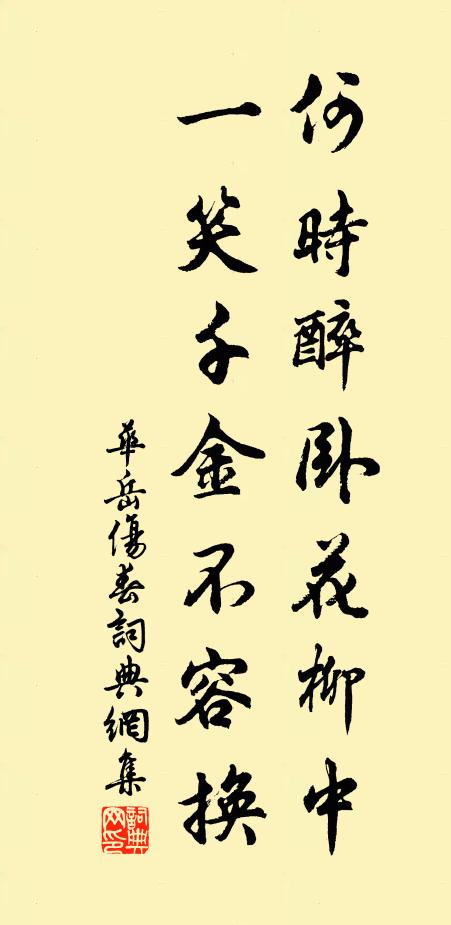 何時醉臥花柳中
一笑千金不容換
華岳傷春詞典網集
詞典网印